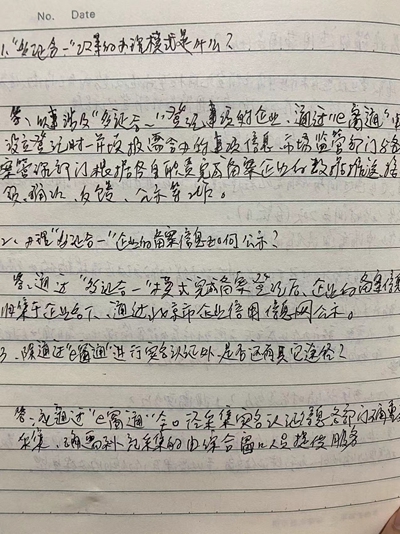 No. Date
1、"多证合一"改革的办理模式是什么?
答:从事涉及"多证合一"登记事项的企业,通过"e窗通"申
设立登记时一并填报需合并的事项信息,市场监管部门与备
案管理部门根据各自职责完成备案企业的数据推送、接
收、确认、反馈、公示等工作。
2、办理"多证合一"企业的备案信息如何公示?
答:通过"多证合一"模式完成备案登记后,企业的备案信息
归集于企业名下,通过北京市企业信用信息网公示。
3、除通过"e窗通"进行实名认证外,是否还有其它途径?
答:通过"e窗通"全口径采集实名认证信息
采集,确需补充采集的由综合窗口人员提供服务